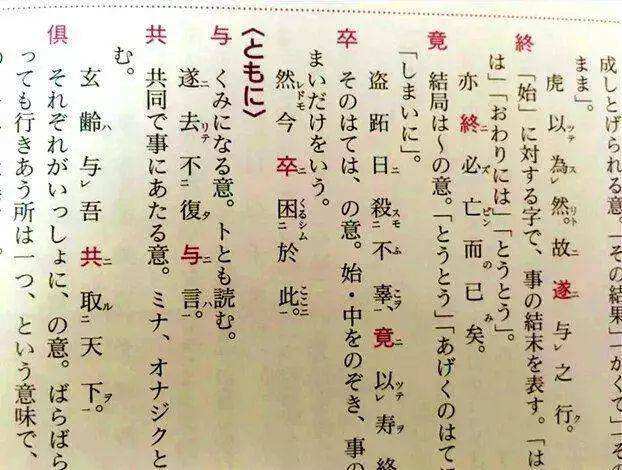 成しとげられる意。「その結果」「かくて」「その
まま」。
虎以為然。故遂与之行。
終 「始」に対する字で、事の結末を表す。「は
は」「おわりには」「とうとう」。
亦終必亡而已矣。
竟 結局は〜の意。「とうとう」「あげくのはて
「しまいに」。
盗跖日殺不辜、竟以寿終
卒 そのはては、の意。始・中をのぞき、事の
まいだけをいう。
然今卒困於此。
〈ともに〉
与 くみになる意。トとも読む。
遂去不復与言。
共 共同で事にあたる意。ミナ、オナジクと
む。
玄齢与吾共取天下。
俱 それぞれがいっしょに、の意。ばらばら
っても行きあう所は一つ、という意味で、